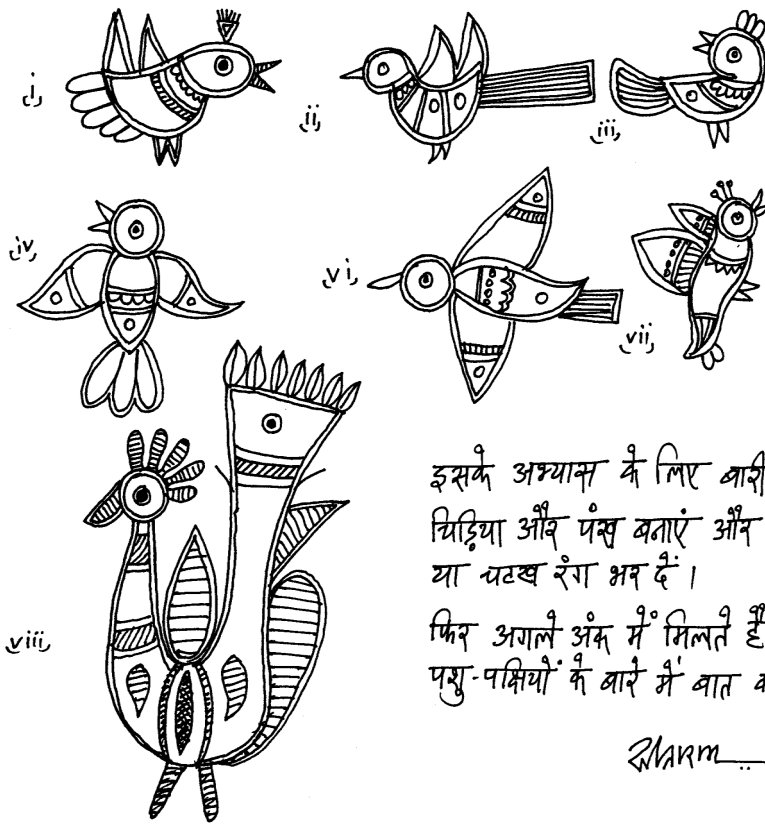 i,
ii,
iii,
iv,
vi,
vii,
viii,
इसके अभ्यास के लिए बारी
चिड़िया और पंख बनाएं और
या चटख रंग भर दें।
फिर अगले अंक में मिलते हैं
पशु-पक्षियों के बारे में बात क